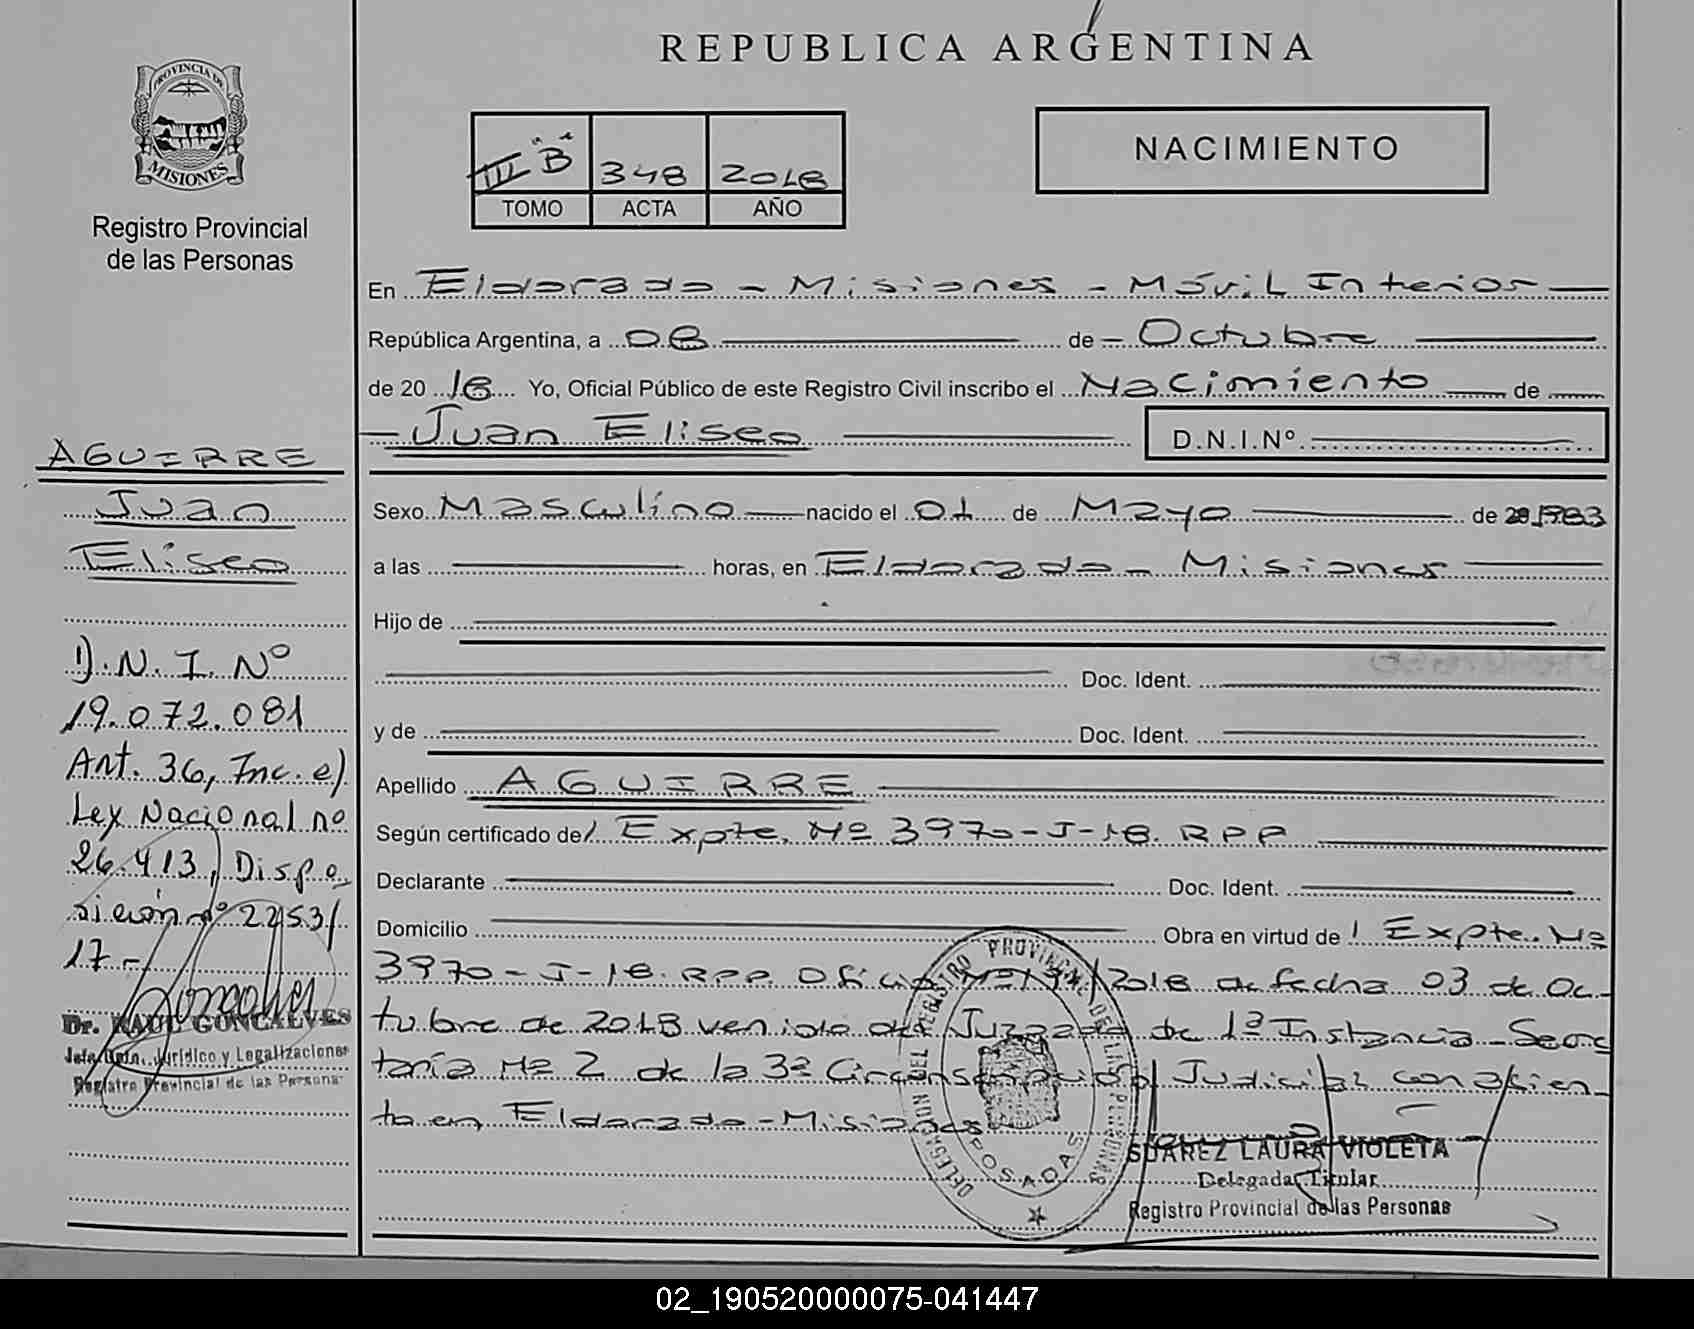 REPUBLICA ARGENTINA
PROVINCIA DE
MISIONES
Registro Provincial
de las Personas
III "B" 348 2018
TOMO ACTA AÑO
NACIMIENTO
En Eldorado - Misiones - Móvil Interior
República Argentina, a 08 de Octubre
de 2018 Yo, Oficial Público de este Registro Civil inscribo el Nacimiento de
Juan Eliseo D.N.I.Nº
Sexo Masculino nacido el 01 de Mayo de 1983
a las horas, en Eldorado - Misiones
Hijo de
Doc. Ident.
y de Doc. Ident.
Apellido AGUIRRE
Según certificado de Expte. Nº 3970-J-18. RPP
Declarante Doc. Ident.
Domicilio Obra en virtud de Expte. Nº
3970-J-18. RPP. Oficio Nº /2018 de fecha 03 de Oc-
tubre de 2018 venido del Juzgado de 1ª Instancia - Secre
taría Nº 2 de la 3ª Circunscripción Judicial con asien-
to en Eldorado - Misiones
AGUIRRE
Juan
Eliseo
D.N.I. Nº
19.072.081
Art. 36, Inc. e)
Ley Nacional nº
26.413, Dispo
sición nº 2253/
17.-
Dr. RAUL GONCALVES
Jefe Dpto. Jurídico y Legalizaciones
Registro Provincial de las Personas
DELEGACION DEL REGISTRO PROVINCIAL DE LAS PERSONAS
POSADAS
SUAREZ LAURA VIOLETA
Delegada Titular
Registro Provincial de las Personas
02_190520000075-041447